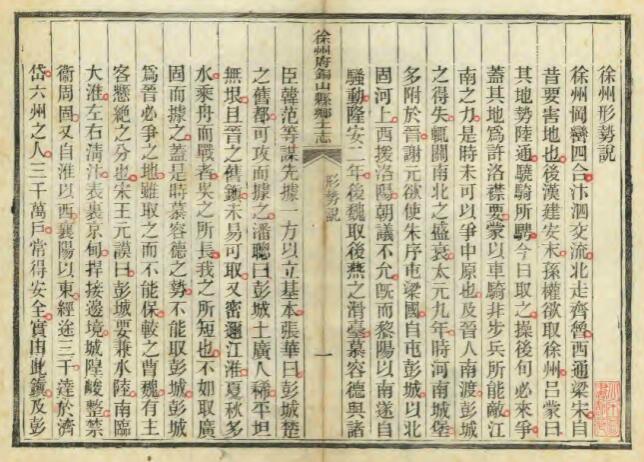 徐州形勢說
徐州岡巒四合汴泗交流北走齊魯西通梁宋自
昔要害地也後漢建安末孫權欲取徐州呂蒙曰
其地勢陸通驍騎所騁今日取之操後旬必來爭
蓋其地爲許洛襟要蒙以車騎非步兵所能敵江
南之力是時未可以爭中原也及晉人南渡彭城
之得失輒關南北之盛衰太元九年時河南城堡
多附於晉謝元欲使朱序屯梁國自屯彭城以北
固河上西援洛陽朝議不允旣而黎陽以南遂自
騷動隆安二年後魏取後燕之滑臺慕容德與諸
徐州府銅山縣鄉土志
形勢說
一
臣韓范等謀先據一方以立基本張華曰彭城楚
之舊都可攻而據之潘聰曰彭城土廣人稀平坦
無垠且晉之舊鎮未易可取又密邇江淮夏秋多
水乘舟而戰者吳之所長我之所短也不如取廣
固而據之蓋是時慕容德之勢不能取彭城彭城
爲晉必爭之地雖取之而不能保較之曹魏有主
客懸絕之分也宋王元謨曰彭城要兼水陸南臨
大淮左右清汴表裏京甸捍接邊境城隍峻整禁
衞周固又自淮以西襄陽以東經途三千達於濟
岱六州之人三千萬戶常得安全實由此鎮及彭